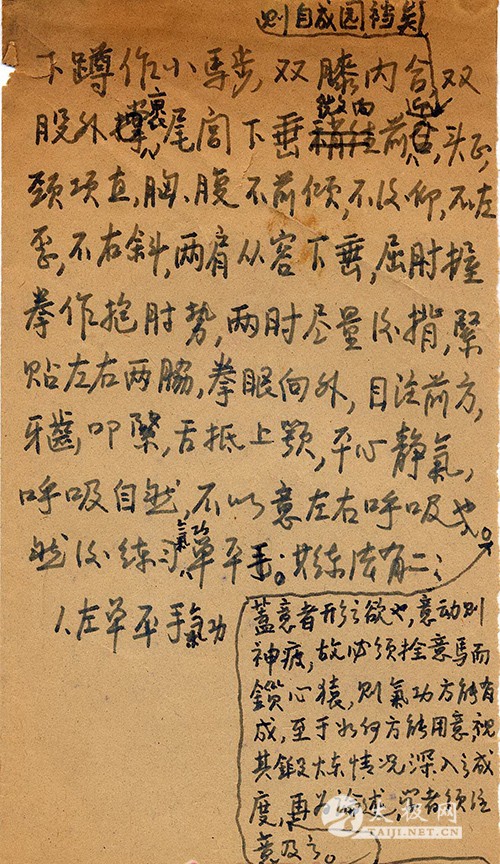 则自成园裆矣
下蹲作小马步,双膝内合,双
股外撑裹,尾闾下垂前,头正,
颈项直,胸、腹不前倾,不后仰,不左
歪,不右斜,两肩从容下垂,屈肘握
拳作抱肘势,两肘尽量后揹,紧
贴左右两脇,拳眼向外,目注前方,
牙齒叩緊,舌抵上颚,平心静氣,
呼吸自然,不以意左右呼吸也。
然后练习氣功单平手。其练法有二:
1.左单平手氣功
蓋意者形之欲也,意动则
神疲,故必须拴意馬而
鎖心猿,则氣功方能有
成,至于如何方能用意,视
其鍛炼情况深入之成
度,再为论述,学者须注
意及之。
太极网
TAIJI.NET.CN